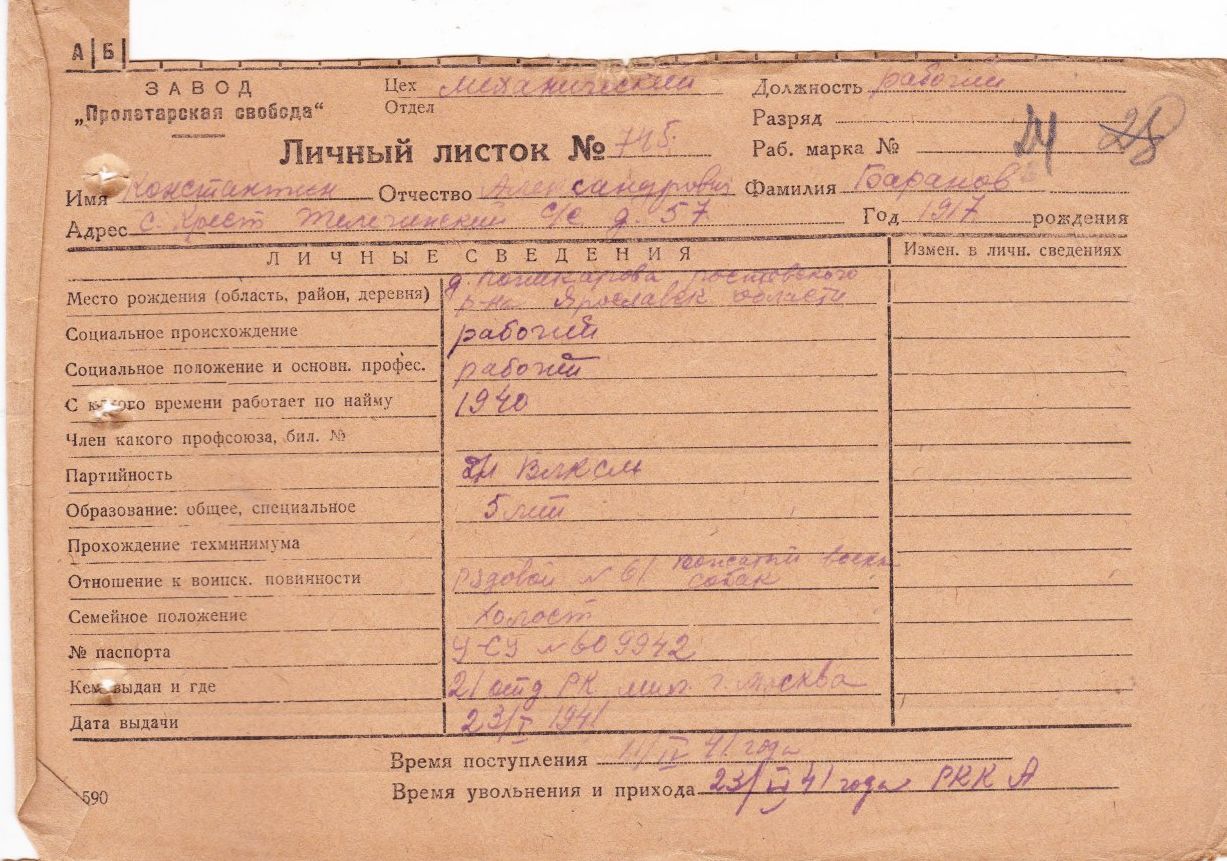 А Б
ЗАВОД
„Пролетарская свобода“
Цех механический
Отдел
Должность рабочий
Разряд
Раб. марка № 24 28
Личный листок № 745
Имя Константин Отчество Александрович Фамилия Баранов
Адрес с. Крест с/с д. 57 Год 1917 рождения
ЛИЧНЫЕ СВЕДЕНИЯ Измен. в личн. сведениях
Место рождения (область, район, деревня) д. Ростовского
р-на Ярославск области
Социальное происхождение рабочий
Социальное положение и основн. профес. рабочий
С какого времени работает по найму 1940
Член какого профсоюза, бил. №
Партийность ВЛКСМ
Образование: общее, специальное 5 лет
Прохождение техминимума
Отношение к воинск. повинности рядовой № 61 вожатый
собак
Семейное положение холост
№ паспорта № 609942
Кем выдан и где 21 отд РК мил. г. Москва
Дата выдачи 23/I 1941
Время поступления 11/IV 41 года
Время увольнения и прихода 23/VI 41 года РККА
590